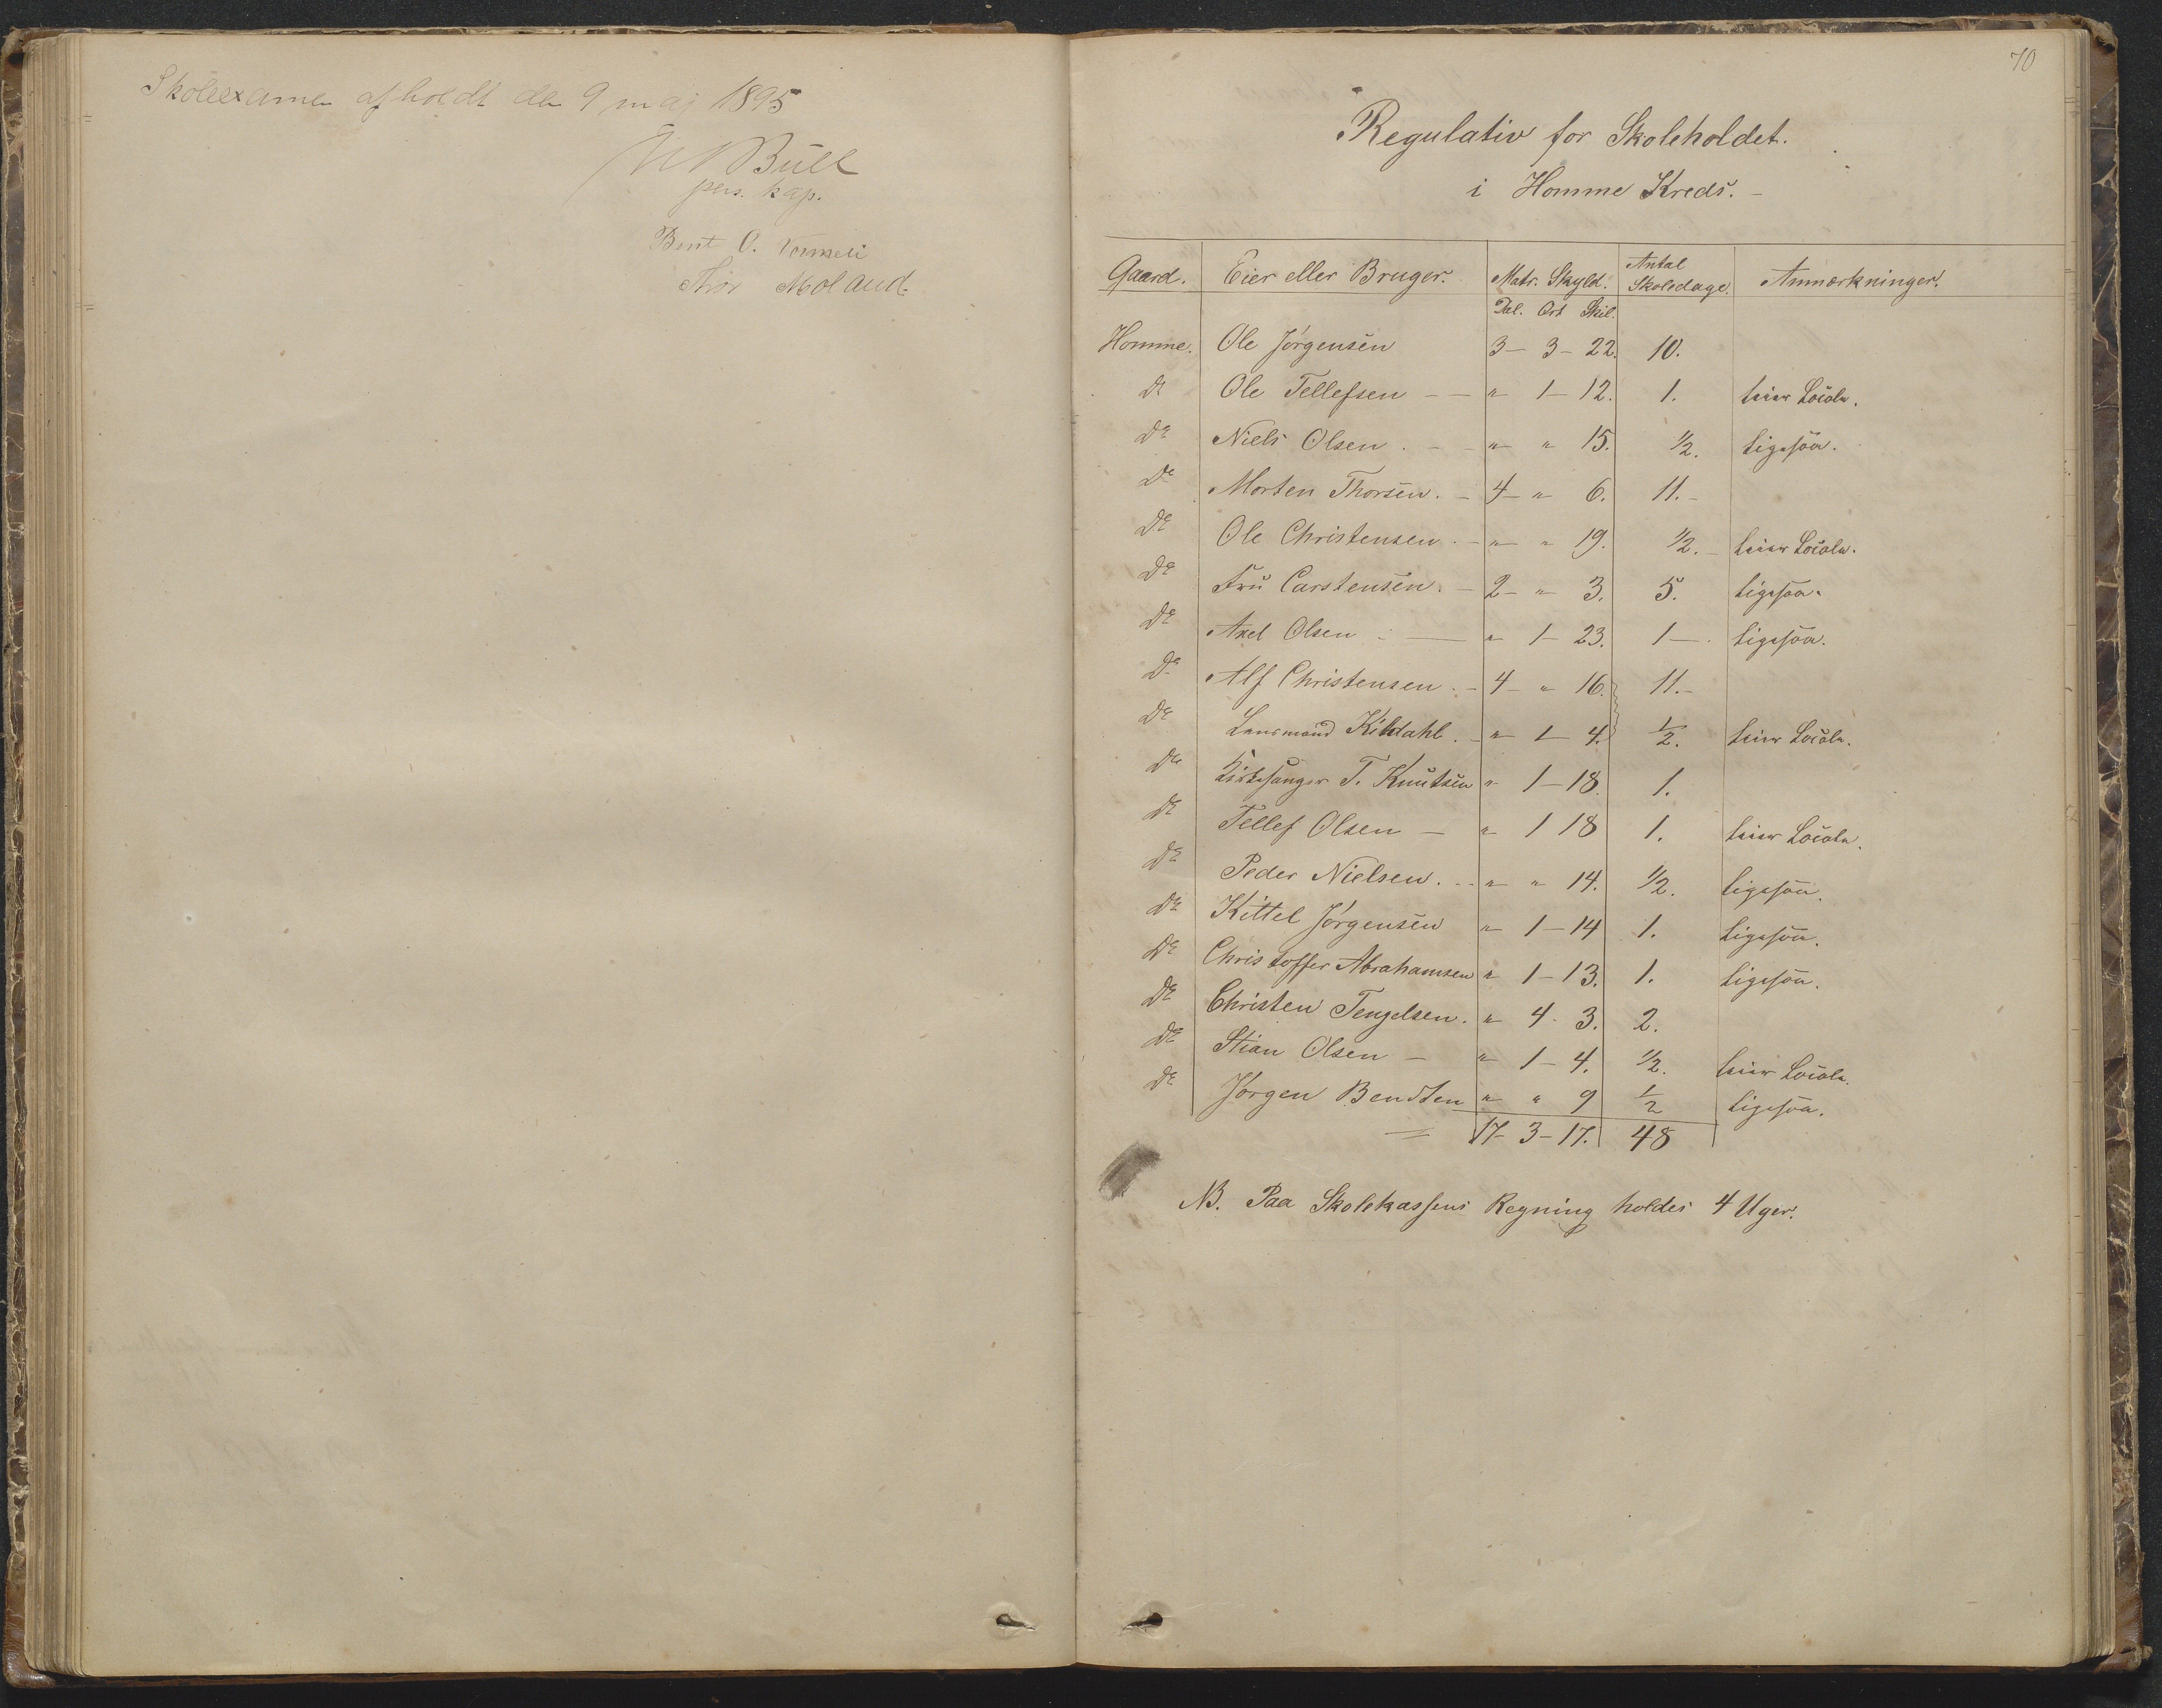 Skoleexamen afholdt den 9 maj 1895
Bull
pers. kap.
Bent O.
Thor Moland
70
Regulativ for Skoleholdet.
i Homme Kreds. –
Gaard. Eier eller Bruger. Matr. Skyld. Antal Skoledage. Anmærkninger.
Dal. Ort Skil.
Homme. Ole Jørgensen 3 – 3 – 22. 10.
Do Ole Tellefsen – – " 1 – 12. 1. leier Locale.
Do Niels Olsen . – – " " 15. 1/2. ligesaa.
Do Morten Thorsen. – 4 – " 6. 11. –
Do Ole Christensen . – " – " 19. 1/2. – leier Locale.
Do Fru Carstensen. – 2 – " 3. 5. ligesaa.
Do Axel Olsen – " 1 – 23. 1 – . ligesaa.
Do Alf Christensen . – 4 – " 16. 11. –
Do Lensmand Kildahl . – " 1 – 4. 1/2. leier Locale.
Do Kirkesanger T. Knutsen " 1 – 18. 1.
Do Tellef Olsen – " 1 18 1. leier Locale.
Do Peder Nielsen. – " – " 14. 1/2. ligesaa.
Do Kittel Jørgensen " – 1 – 14 1. ligesaa.
Do Christoffer Abrahamsen " 1 – 13. 1. ligesaa.
Do Christen Tengelsen. " 4 – 3. 2.
Do Stian Olsen – " 1 – 4. 1/2. leier Locale.
Do Jørgen Bendtsen " " 9 1/2 ligesaa.
17 – 3 – 17. 48
NB. Paa Skolekassens Regning holdes 4 Uger.